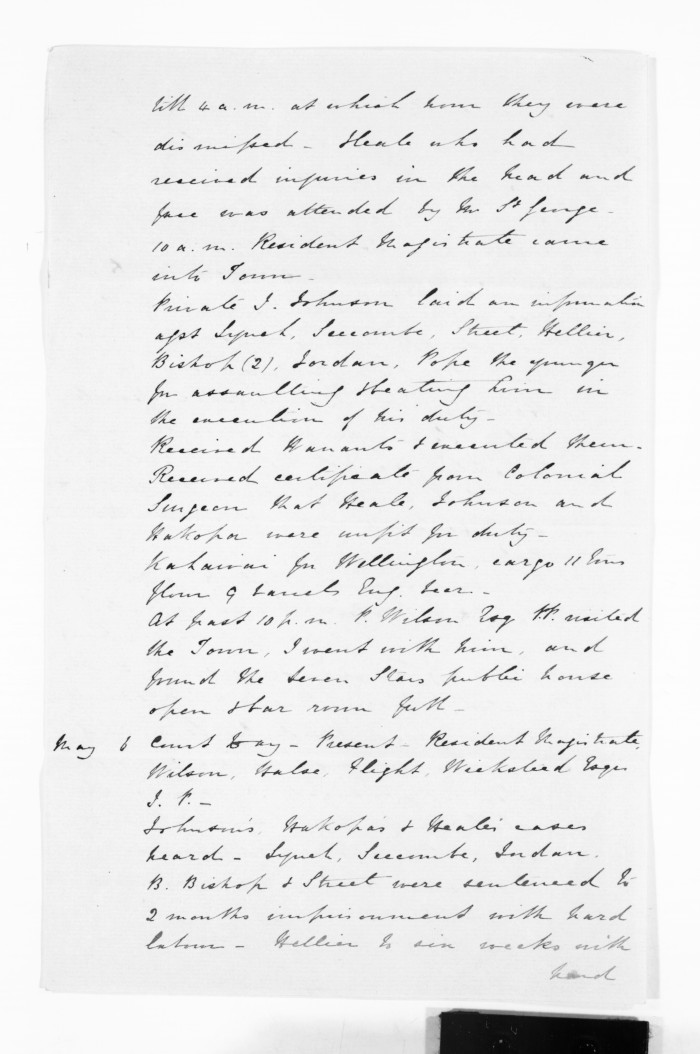 till 4 a.m. at which hour they were
dismissed - Heale who had
received injuries in the head and
face was attended by Mr St George -
10 a.m. Resident Magistrate came
into Town -
Private J. Johnson laid an information
agst Lynch, Seccombe, Street, Hellier,
Bishop (2), Jordan, Pope the younger
for assaulting & beating him in
the execution of his duty -
Received Warrants & executed them -
Received certificate from Colonial
Surgeon that Heale, Johnson and
Hakopa were unfit for duty -
Kahawai for Wellington, cargo 11 tons
flour 9 barrels Eng. beer -
At past 10 p.m. P. Wilson Esq J.P. visited
the Town, I went with him, and
found the Seven Stars public house
open & bar room full -
May 6 Court Day - Present - Resident Magistrate,
Wilson, Halse, Flight, Wicksteed Esqrs
J. P. -
Johnson's, Hakopa's & Heale's cases
heard - Lynch, Seccombe, Jordan,
B. Bishop & Street were sentenced to
2 months imprisonment with hard
labour - Hellier to six weeks with
hard